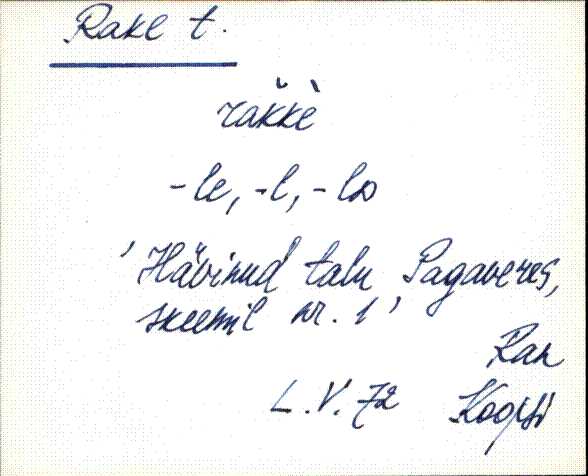 Rake t.
rak̆kè
-le, -l, -lo
'Hävinud talu Pagaveres,
skeemil nr. 1'
Ran
L.V. 72 Koopsi